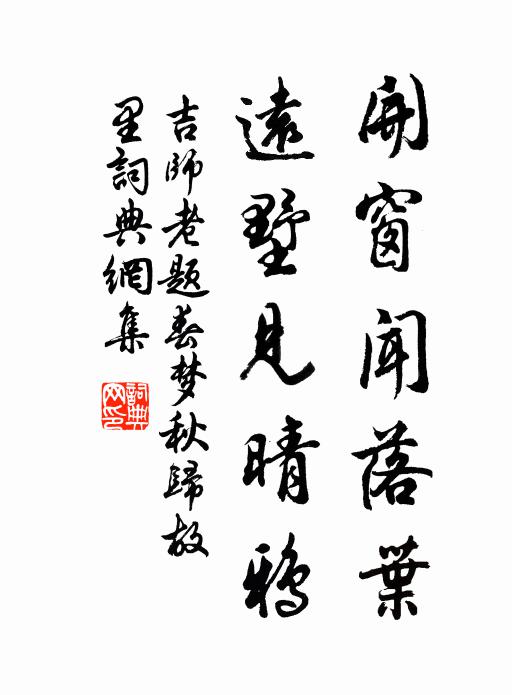 開窗聞落葉
遠墅見晴鴉
吉師老題春梦秋歸故
里詞典網集
詞典网印